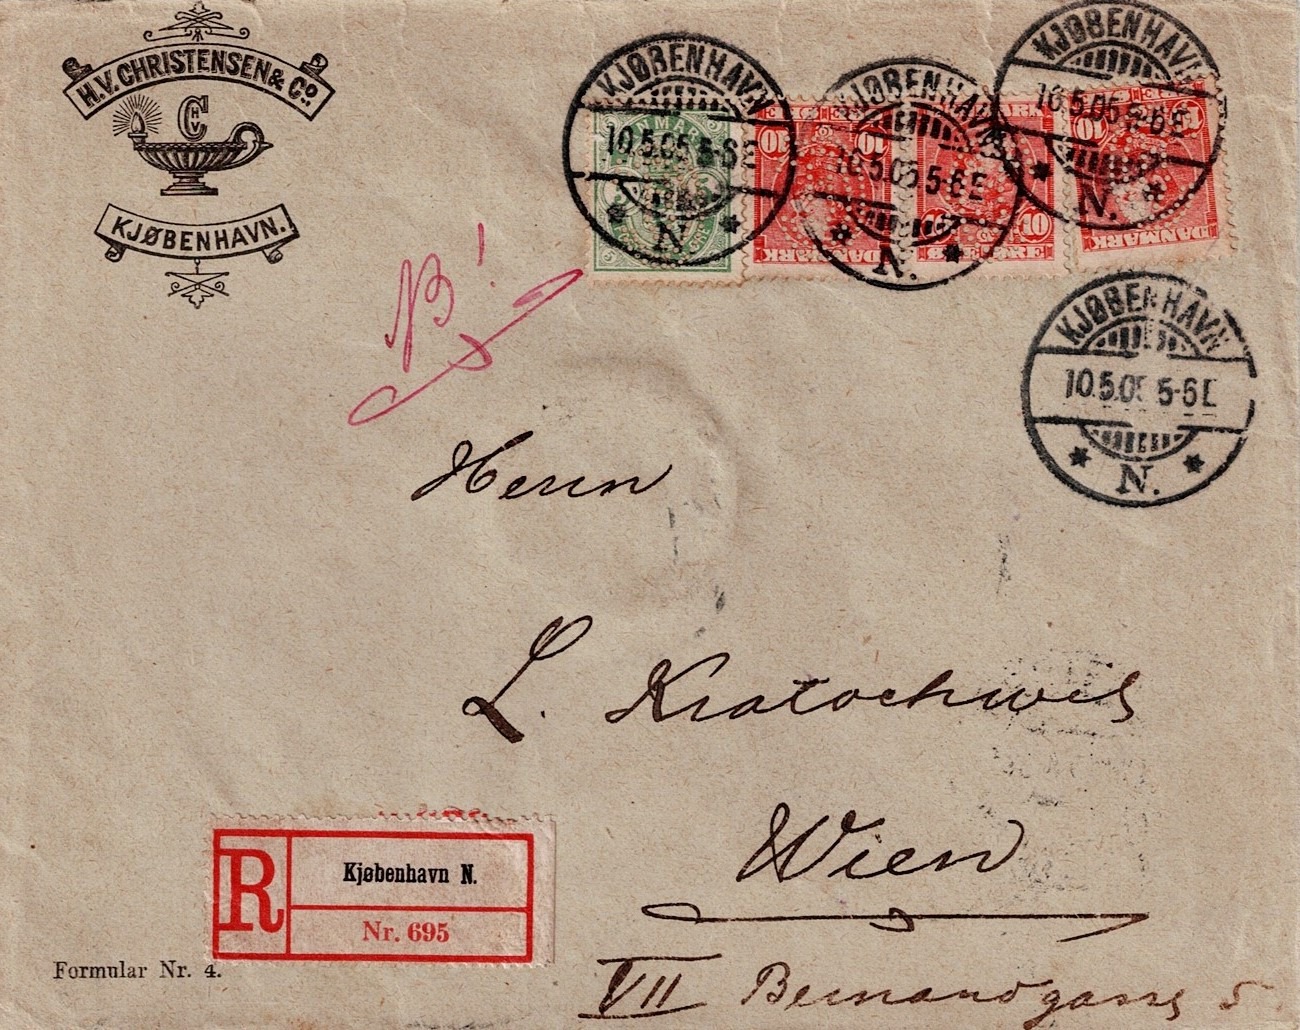 H.V. CHRISTENSEN & Co.
C
HV
KJØBENHAVN.
KJØBENHAVN
10.5.05 5-6 E
N.
KJØBENHAVN
10.5.05 5-6 E
N.
KJØBENHAVN
10.5.05 5-6 E
N.
DANMARK
5
10
10
DANMARK
10
10
DANMARK
KJØBENHAVN
10.5.05 5-6 E
N.
Herrn
L. Kratochwil
Wien
VII Bernardgasse 5
R
Kjøbenhavn N.
Nr. 695
Formular Nr. 4.